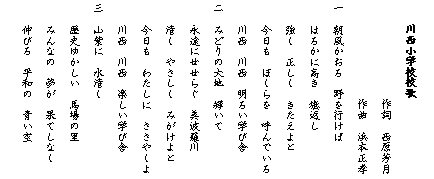 川西小学校校歌
作詞 西原芳月
作曲 浜本正孝
一 朝風かおる 野を行けば
はるかに高き 鷹返し
強く 正しく きたえよと
今日も ぼくらを 呼んでいる
川西 川西 明るい学び舎
二 みどりの大地 輝いて
永遠にせせらぐ 美波羅川
清く やさしく みがけよと
今日も わたしに ささやくよ
川西 川西 楽しい学び舎
三 山紫に 水清く
歴史ゆかしい 馬場の里
みんなの 夢が 果てしなく
伸びる 平和の 青い空